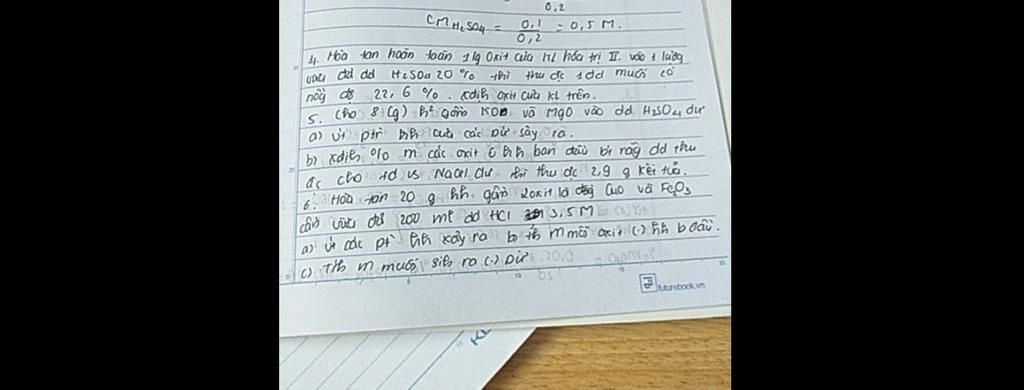 0,2
CM H₂SO₄ = 0,1 / 0,2 = 0,5 M.
4. Hòa tan hoàn toàn 1 lg Oxit của KL hóa trị II. vào 1 lượng
vừa đủ dd H₂SO₄ 20 % thì thu đc 1 dd muối có
nồng độ 22,6 %. xđịh oxit của KL trên.
5. Cho 8 (g) h² gồm và MgO vào dd H₂SO₄ dư
a) Vt ptr hh của các pứ sảy ra.
b) xđịh % m các oxit hh ban đầu bt rằg dd thu
đc cho td vs NaOH dư thì thu đc 2,9 g kết tủa.
6. Hòa tan 20 g hh gồm 2 oxit là CuO và Fe₂O₃
cần vừa đủ 200 ml dd HCl 3,5 M
a) Vt các pt hh xảy ra b) th m mỗi oxit (.) hh b đầu.
c) Tíh m muối sih ra (.) pứ
futurebook.vn